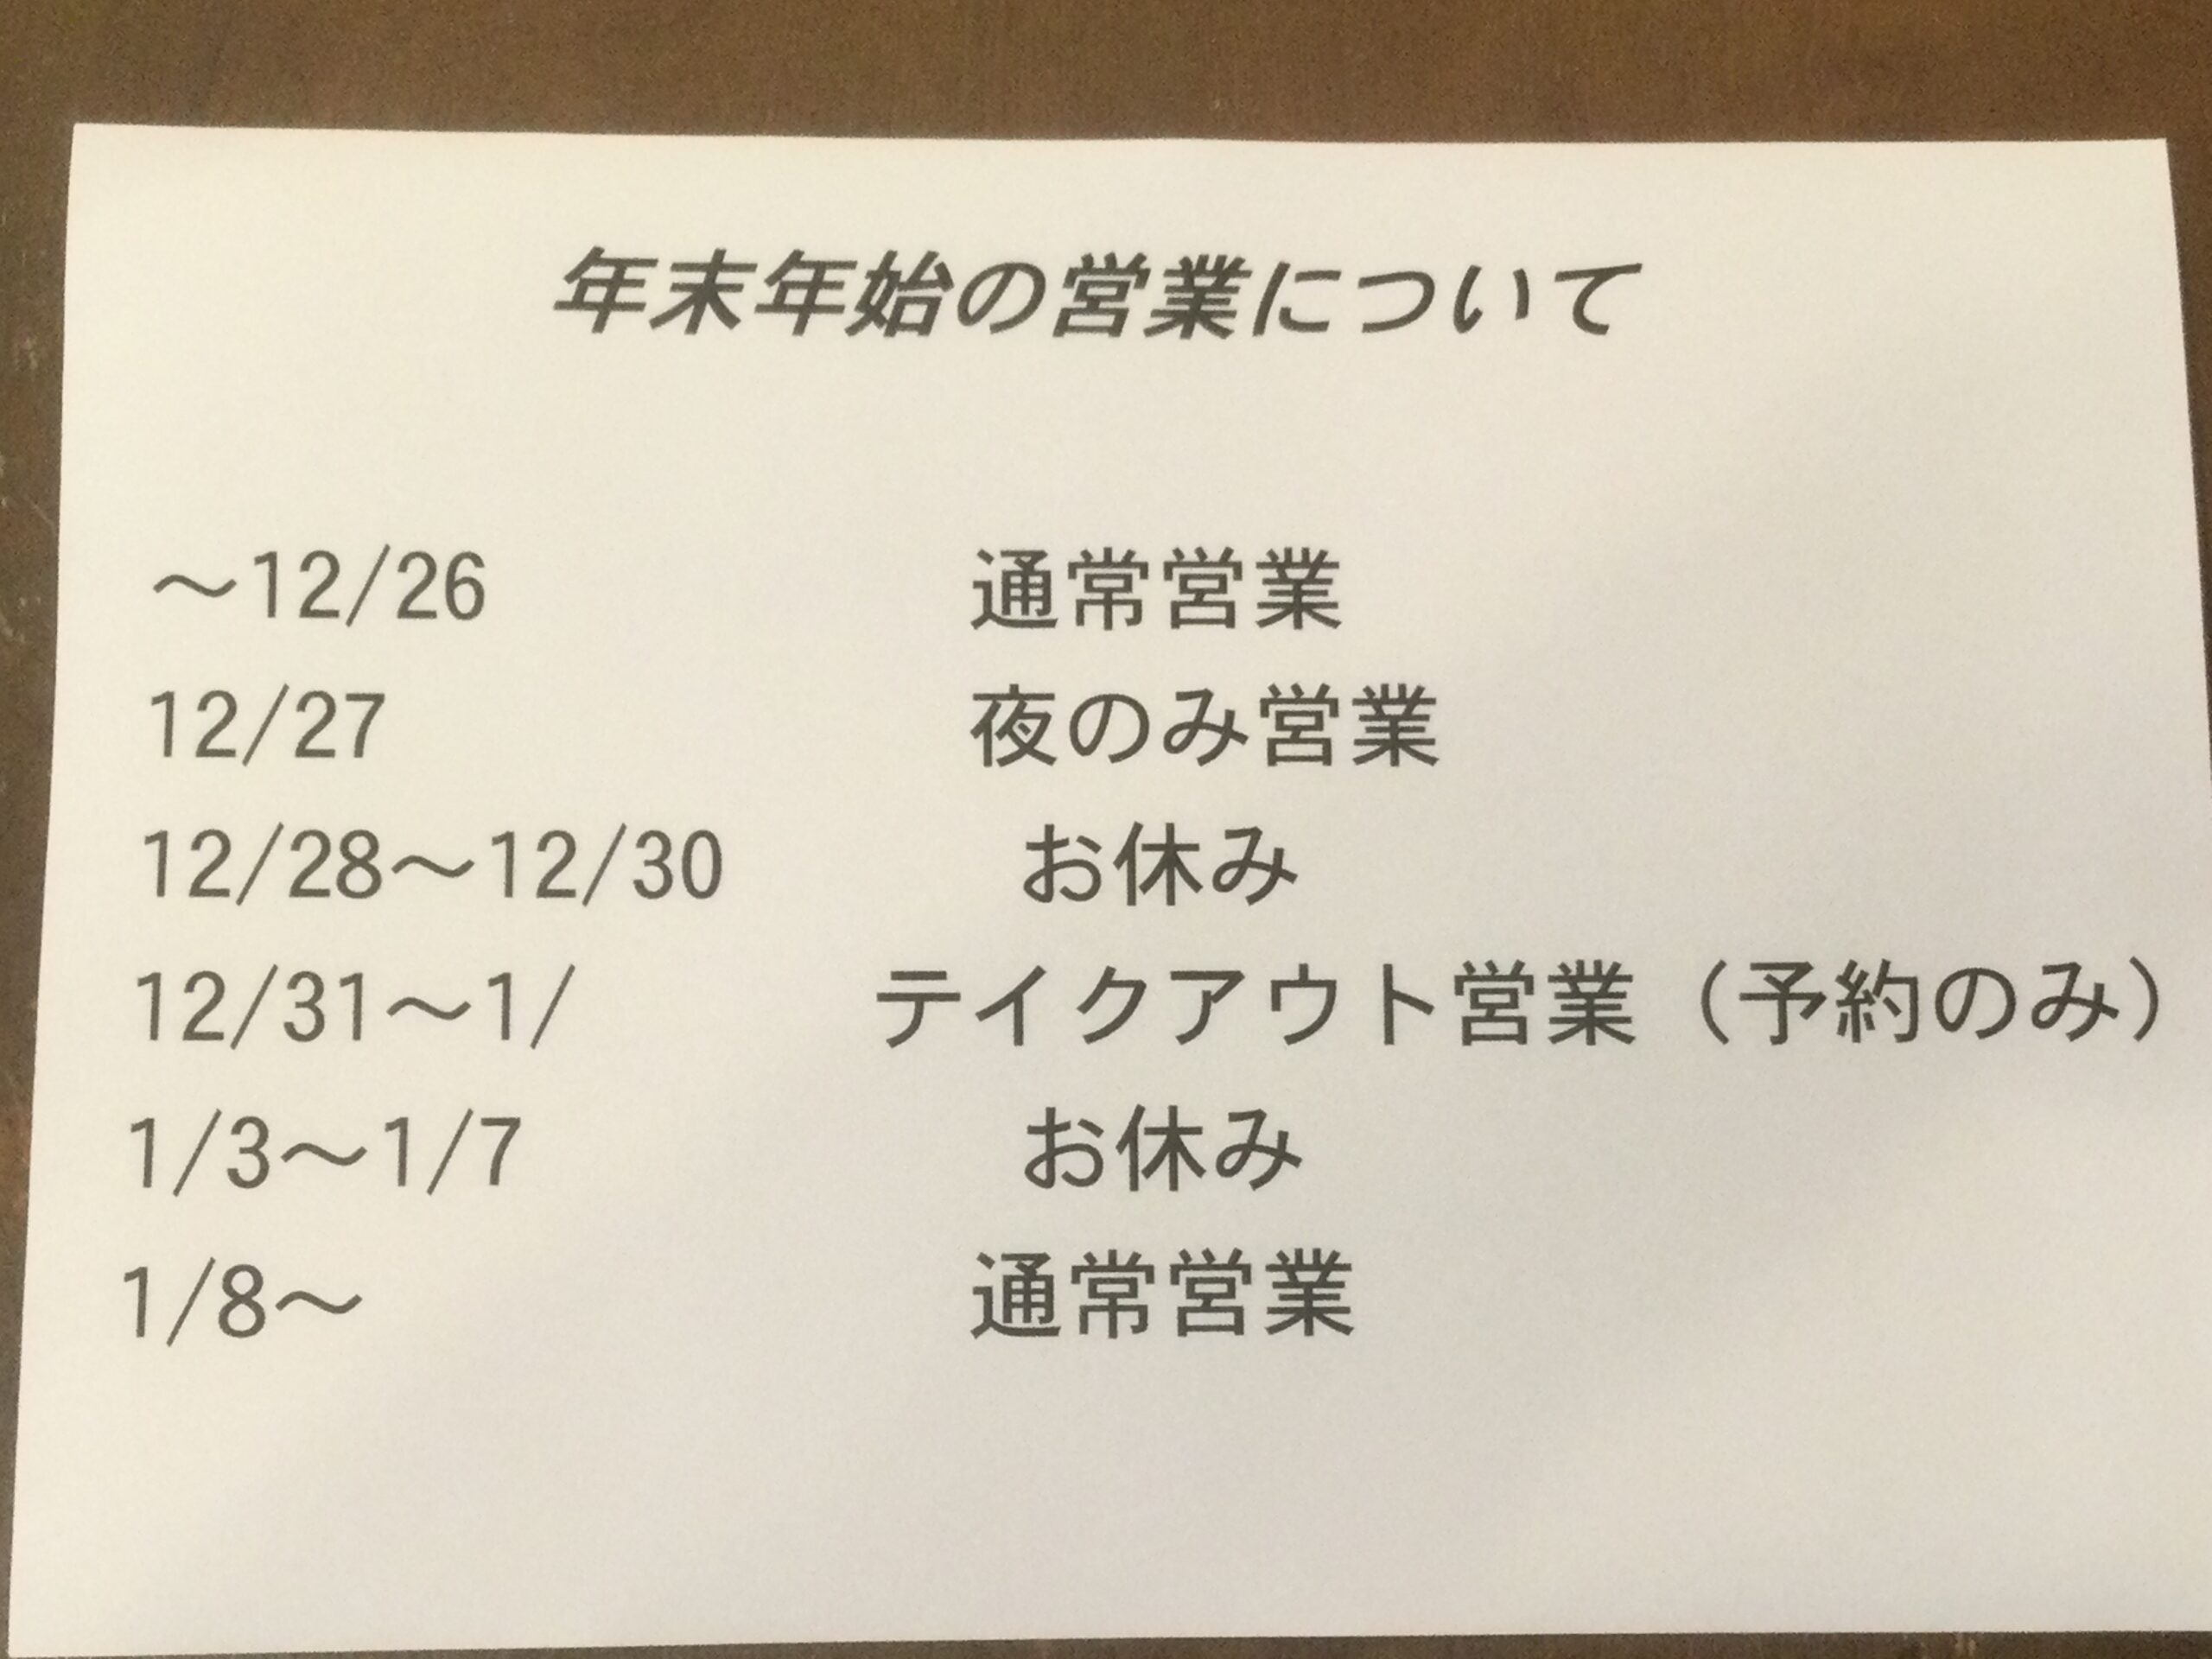 年末年始の営業について
～12/26 通常営業
12/27 夜のみ営業
12/28～12/30 お休み
12/31～1/ テイクアウト営業（予約のみ）
1/3～1/7 お休み
1/8～ 通常営業